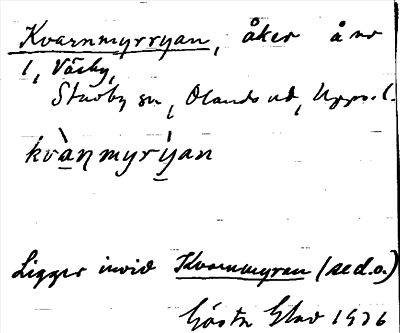 Kvarnmyrryan, åker å nr
1, Väsby,
Stavby sn, Olands hd, Upps. l.
kvàṉmyrýan
Ligger invid Kvarnmyran (se d.o.)
Gösta Elav 1936